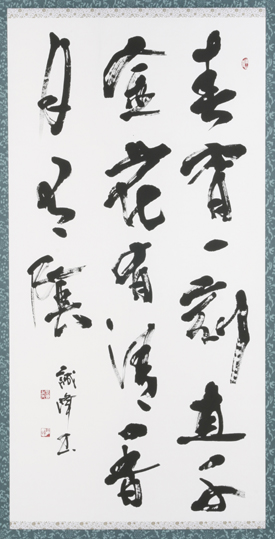 春宵一刻直千
金花有清香
月有陰